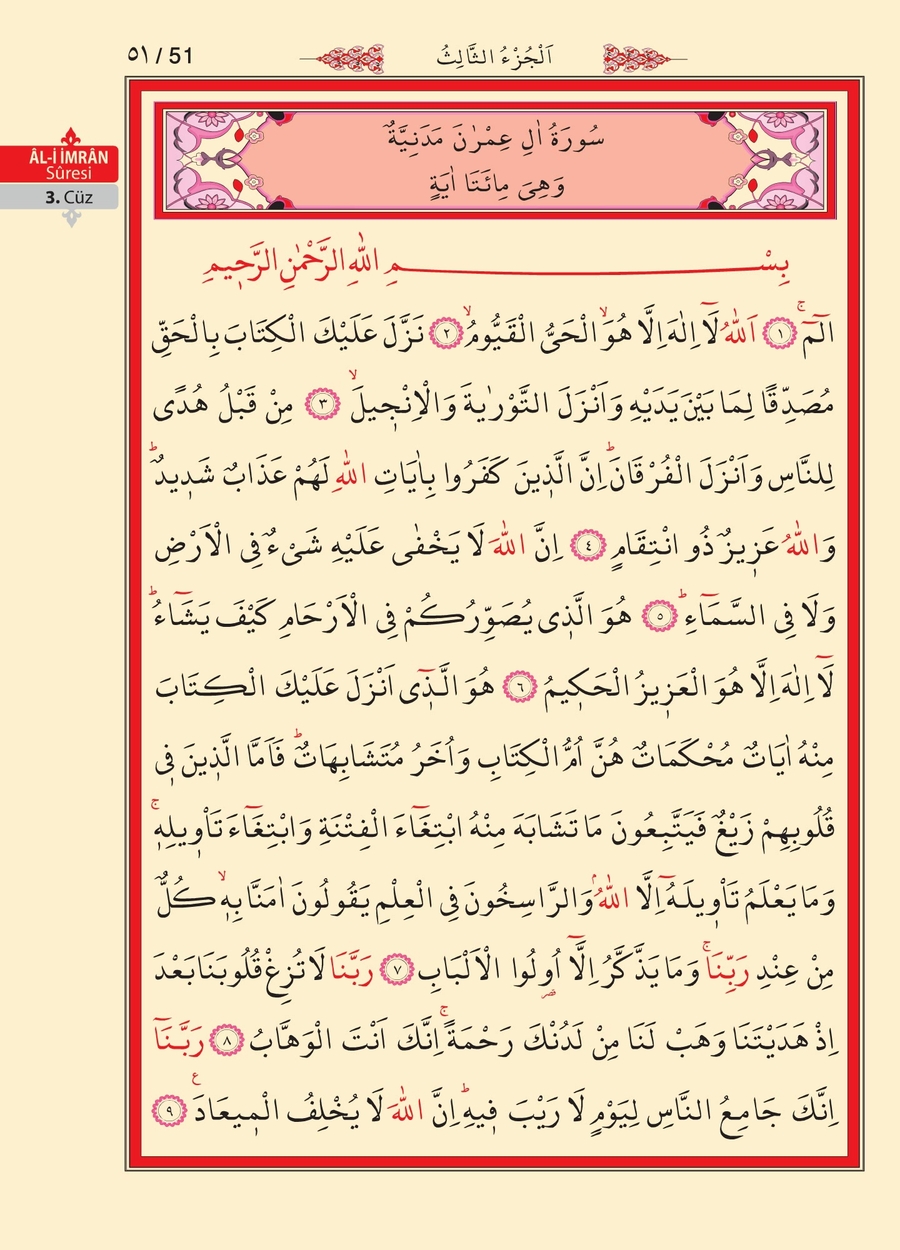 ٥١ / 51
اَلْجُزْءُ الثَّالِثُ
ÂL-İ İMRÂN
Sûresi
3. Cüz
سُورَةُ اٰلِ عِمْرٰنَ مَدَنِيَّةٌ
وَهِىَ مِائَتَا اٰيَةٍ
بِسْمِ اللّٰهِ الرَّحْمٰنِ الرَّحٖيمِ
الٓمٓۚ ﴿١﴾ اَللّٰهُ لَٓا اِلٰهَ اِلَّا هُوَۙ الْحَىُّ الْقَيُّومُۙ ﴿٢﴾ نَزَّلَ عَلَيْكَ الْكِتَابَ بِالْحَقِّ
مُصَدِّقًا لِمَا بَيْنَ يَدَيْهِ وَاَنْزَلَ التَّوْرٰيةَ وَالْاِنْجٖيلَۙ ﴿٣﴾ مِنْ قَبْلُ هُدًى
لِلنَّاسِ وَاَنْزَلَ الْفُرْقَانَؕ اِنَّ الَّذٖينَ كَفَرُوا بِاٰيَاتِ اللّٰهِ لَهُمْ عَذَابٌ شَدٖيدٌؕ
وَاللّٰهُ عَزٖيزٌ ذُو انْتِقَامٍ ﴿٤﴾ اِنَّ اللّٰهَ لَا يَخْفٰى عَلَيْهِ شَىْءٌ فِى الْاَرْضِ
وَلَا فِى السَّمَٓاءِؕ ﴿٥﴾ هُوَ الَّذٖى يُصَوِّرُكُمْ فِى الْاَرْحَامِ كَيْفَ يَشَٓاءُؕ
لَٓا اِلٰهَ اِلَّا هُوَ الْعَزٖيزُ الْحَكٖيمُ ﴿٦﴾ هُوَ الَّذٖٓى اَنْزَلَ عَلَيْكَ الْكِتَابَ
مِنْهُ اٰيَاتٌ مُحْكَمَاتٌ هُنَّ اُمُّ الْكِتَابِ وَاُخَرُ مُتَشَابِهَاتٌؕ فَاَمَّا الَّذٖينَ فٖى
قُلُوبِهِمْ زَيْغٌ فَيَتَّبِعُونَ مَا تَشَابَهَ مِنْهُ ابْتِغَٓاءَ الْفِتْنَةِ وَابْتِغَٓاءَ تَاْوٖيلِهٖۚ
وَمَا يَعْلَمُ تَاْوٖيلَهُٓ اِلَّا اللّٰهُۢ وَالرَّاسِخُونَ فِى الْعِلْمِ يَقُولُونَ اٰمَنَّا بِهٖۙ كُلٌّ
مِنْ عِنْدِ رَبِّنَاۚ وَمَا يَذَّكَّرُ اِلَّٓا اُولُوا الْاَلْبَابِ ﴿٧﴾ رَبَّنَا لَا تُزِغْ قُلُوبَنَا بَعْدَ
اِذْ هَدَيْتَنَا وَهَبْ لَنَا مِنْ لَدُنْكَ رَحْمَةًۚ اِنَّكَ اَنْتَ الْوَهَّابُ ﴿٨﴾ رَبَّنَٓا
اِنَّكَ جَامِعُ النَّاسِ لِيَوْمٍ لَا رَيْبَ فٖيهِؕ اِنَّ اللّٰهَ لَا يُخْلِفُ الْمٖيعَادَࣖ ﴿٩﴾